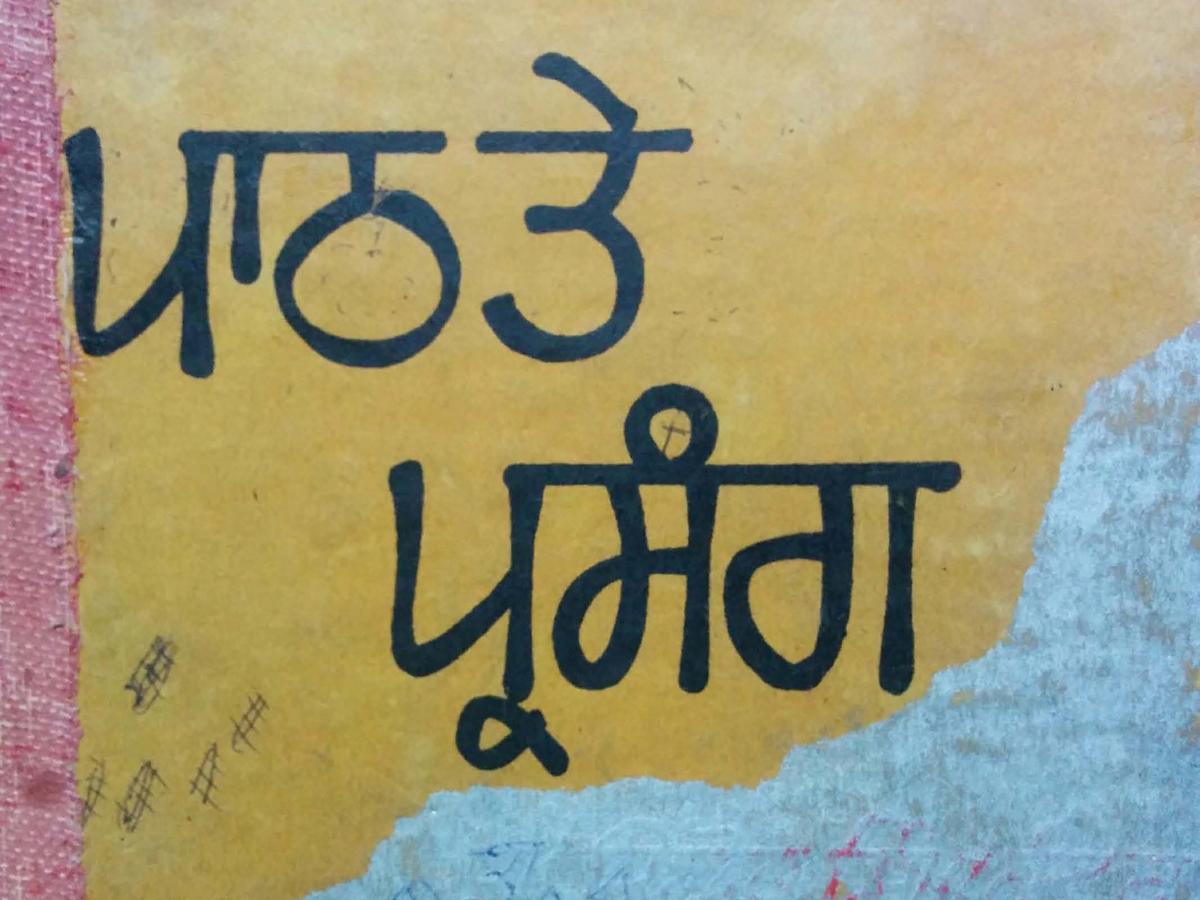 ਪਾਠ ਤੇ
ਪ੍ਰਸੰਗ